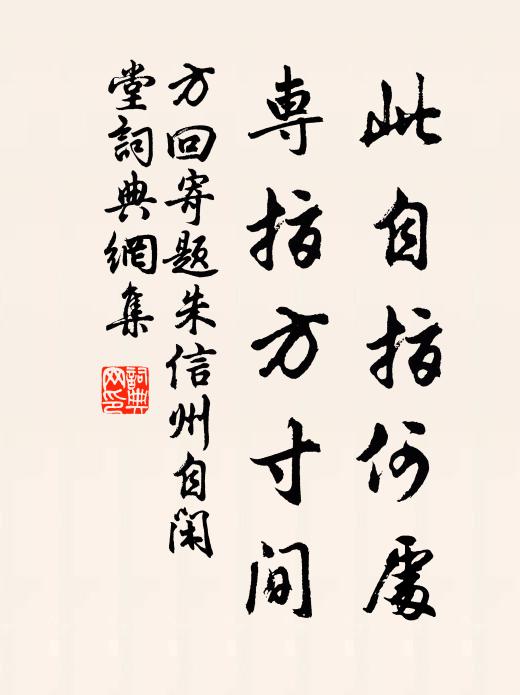 此自指何處
專指方寸間
方回寄題朱信州自閑
堂詞典網集
詞典網印